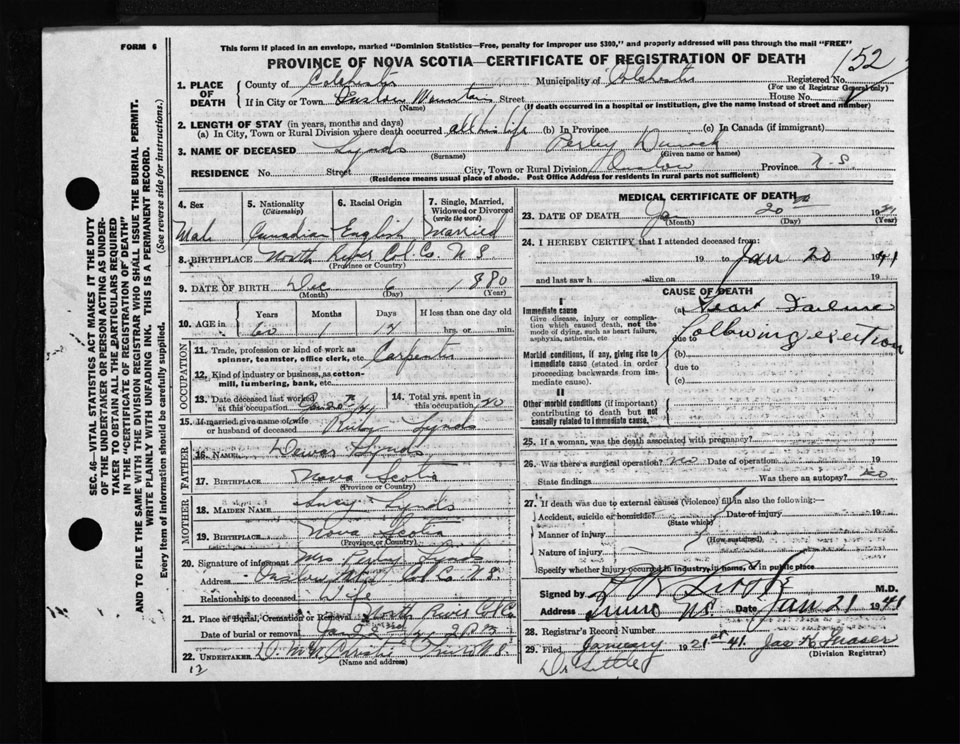 FORM 6
This form if placed in an envelope, marked "Dominion Statistics—Free, penalty for improper use $300," and properly addressed will pass through the mail "FREE"
PROVINCE OF NOVA SCOTIA—CERTIFICATE OF REGISTRATION OF DEATH
152
1. PLACE OF DEATH County of Colchester Municipality of Colchester Registered No.
(For use of Registrar General only)
If in City or Town Onslow Mountain Street House No.
(Name) (If death occurred in a hospital or institution, give the name instead of street and number)
2. LENGTH OF STAY (in years, months and days)
(a) In City, Town or Rural Division where death occurred all his life (b) In Province (c) In Canada (if immigrant)
3. NAME OF DECEASED Lynds Perley
(Surname) (Given name or names)
RESIDENCE No. Street City, Town or Rural Division Onslow Province N.S.
(Residence means usual place of abode. Post Office Address for residents in rural parts not sufficient)
4. Sex 5. Nationality (Citizenship) 6. Racial Origin 7. Single, Married, Widowed or Divorced (write the word)
Male Canadian English Married
8. BIRTHPLACE North River Col. Co. N S
(Province or Country)
9. DATE OF BIRTH Dec 6 1880
(Month) (Day) (Year)
10. AGE in Years Months Days If less than one day old
60 1 hrs. or min.
OCCUPATION
11. Trade, profession or kind of work as spinner, teamster, office clerk, etc. Carpenter
12. Kind of industry or business, as cotton-mill, lumbering, bank, etc.
13. Date deceased last worked at this occupation
14. Total yrs. spent in this occupation
15. If married give name of wife or husband of deceased Ruby Lynds
FATHER
16. NAME Lynds
17. BIRTHPLACE Nova Scotia
MOTHER
18. MAIDEN NAME Lucy Lynds
19. BIRTHPLACE Nova Scotia
(Province or Country)
20. Signature of informant Mrs Perley Lynds
Address Col Co N.S.
Relationship to deceased Wife
21. Place of Burial, Cremation or Removal North River Col Co
Date of burial or removal
22. UNDERTAKER Truro N.S.
(Name and address)
MEDICAL CERTIFICATE OF DEATH
23. DATE OF DEATH Jan 20 1941
(Month) (Day) (Year)
24. I HEREBY CERTIFY, that I attended deceased from:
19 to Jan 20 1941
and last saw h alive on 19
CAUSE OF DEATH
I
Immediate cause
Give disease, injury or complication which caused death, not the mode of dying, such as heart failure, asphyxia, asthenia, etc
(a) Heart Failure
due to following exertion
Morbid conditions, if any, giving rise to immediate cause (stated in order proceeding backwards from immediate cause).
(b)
due to
(c)
II
Other morbid conditions (if important) contributing to death but not causally related to immediate cause.
25. If a woman, was the death associated with pregnancy?
26. Was there a surgical operation? no Date of operation 19
State findings Was there an autopsy? no
27. If death was due to external causes (violence) fill in also the following:—
Accident, suicide or homicide? Date of injury 19
(State which)
Manner of injury
(How sustained)
Nature of injury
Specify whether injury occurred in industry, in home, or in public place
Signed by M.D.
Address Truro N.S. Date Jan 21 1941
28. Registrar's Record Number
29. Filed January 21st 1941. Jas K Fraser
(Division Registrar)
SEC. 46—VITAL STATISTICS ACT MAKES IT THE DUTY OF THE UNDERTAKER OR PERSON ACTING AS UNDERTAKER TO OBTAIN ALL THE PARTICULARS REQUIRED IN THE "CERTIFICATE OF REGISTRATION OF DEATH" AND TO FILE THE SAME WITH THE DIVISION REGISTRAR WHO SHALL ISSUE THE BURIAL PERMIT.
WRITE PLAINLY WITH UNFADING INK. THIS IS A PERMANENT RECORD.
Every item of information should be carefully supplied. (See reverse side for instructions.)